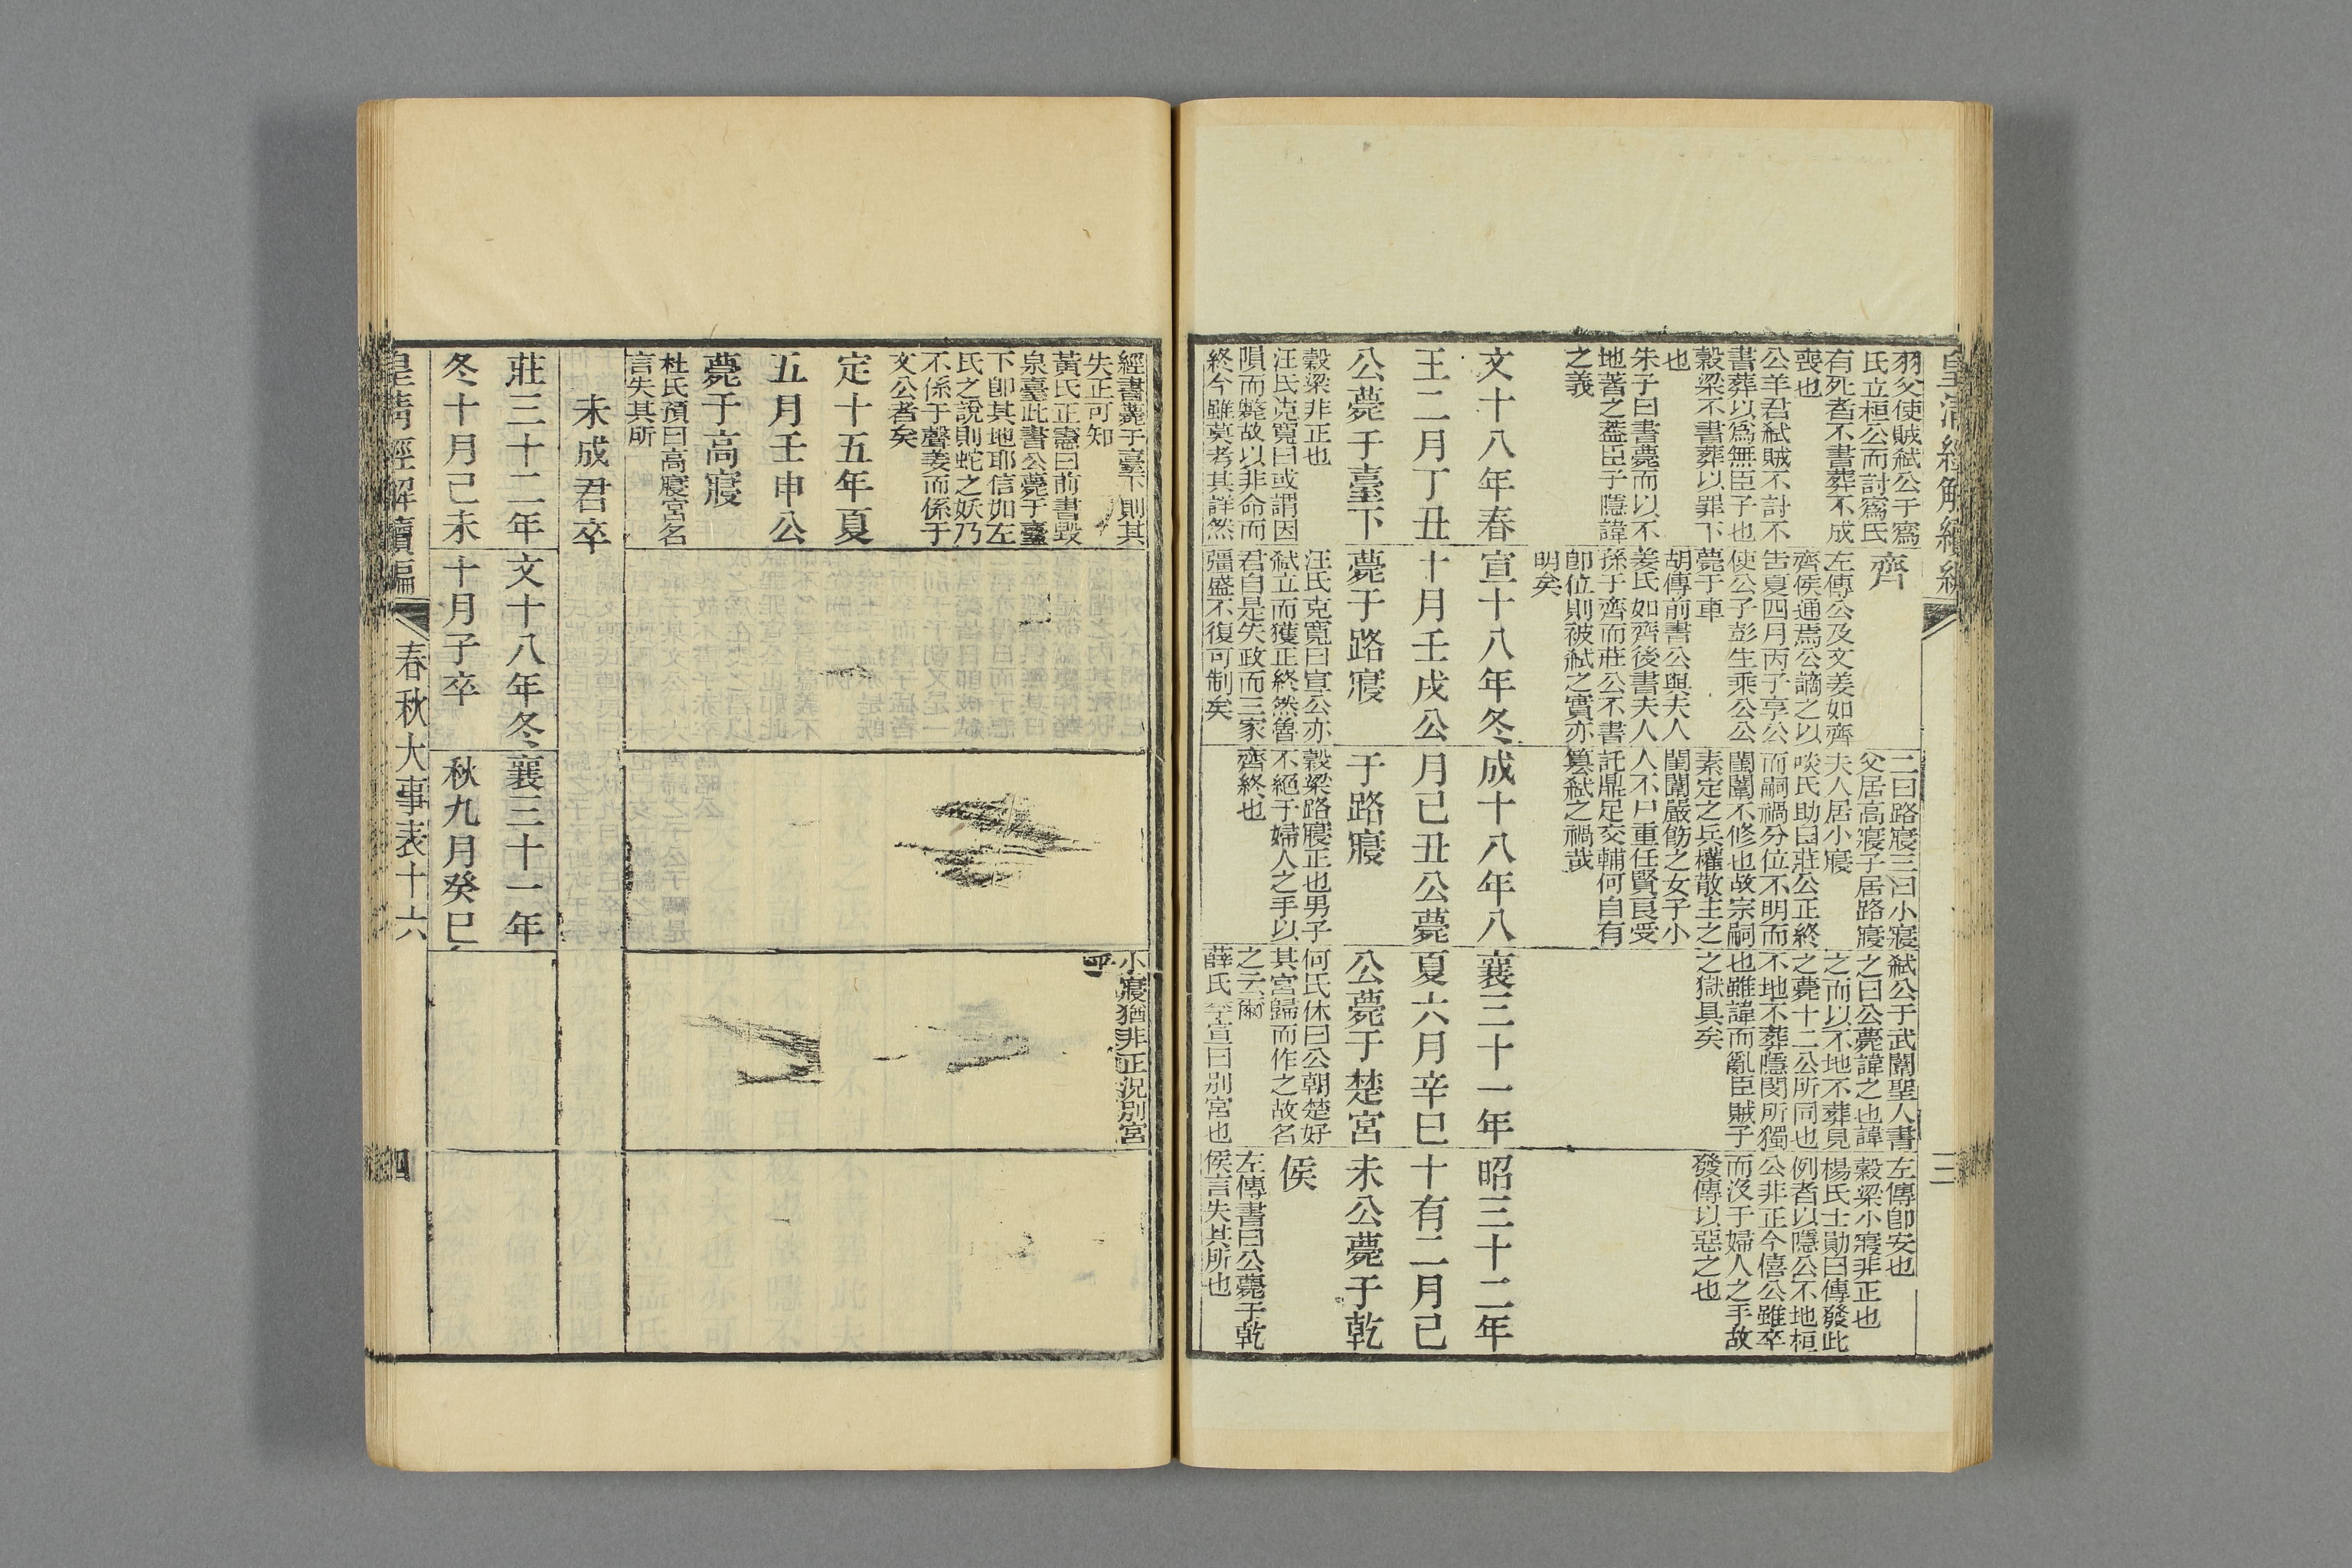 羽父使賊弑公于寪
氏立桓公而討寪氏
有死者不書葬不成
喪也
公羊君弑賊不討不
書葬以爲無臣子也
穀梁不書葬以罪下
也
朱子曰書薨而以不
地著之蓋臣子隱諱
之義
齊
左傳公及文姜如齊
齊侯通焉公謫之以
告夏四月丙子享公
使公子彭生乘公公
薨于車
胡傳前書公與夫人
姜氏如齊後書夫人
孫于齊而莊公不書
卽位則被弑之實亦
明矣
二曰路寢三曰小寢
父居高寢子居路寢
夫人居小寢
啖氏助曰莊公正終
而嗣禍分位不明而
閨闈不修也故宗嗣
素定之兵權散主之
閨闈嚴飭之女子小
人不尸重任賢良受
託鼎足交輔何自有
篡弑之禍哉
弑公于武闈聖人書
之曰公薨諱之也諱
之而以不地不葬見
之薨十二公所同也
不地不葬隱閔所獨
也雖諱而亂臣賊子
之獄具矣
左傳卽安也
穀梁小寢非正也
楊氏士勛曰傳發此
例者以隱公不地桓
公非正今僖公雖卒
而沒于婦人之手故
發傳以惡之也
文十八年春
王二月丁丑
公薨于臺下
穀梁非正也
汪氏克寬曰或謂因
隕而斃故以非命而
終今雖莫考其詳然
宣十八年冬
十月壬戌公
薨于路寢
汪氏克寬曰宣公亦
弑立而獲正終然魯
君自是失政而三家
彊盛不復可制矣
成十八年八
月己丑公薨
于路寢
穀梁路寢正也男子
不絕于婦人之手以
齊終也
襄三十一年
夏六月辛巳
公薨于楚宮
何氏休曰公朝楚好
其宮歸而作之故名
之云爾
薛氏季宣曰別宮也
昭三十二年
十有二月己
未公薨于乾
侯
左傳書曰公薨于乾
侯言失其所也
三
經書薨于臺下則其
失正可知
黃氏正憲曰前書毀
泉臺此書公薨于臺
下卽其地耶信如左
氏之說則蛇之妖乃
不係于聲姜而係于
文公者矣
小寢猶非正況別宮
乎
定十五年夏
五月壬申公
薨于高寢
杜氏預曰高寢宮名
言失其所
未成君卒
莊三十二年
冬十月己未
文十八年冬
十月子卒
襄三十一年
秋九月癸巳
皇清經解續編
春秋大事表十六
四